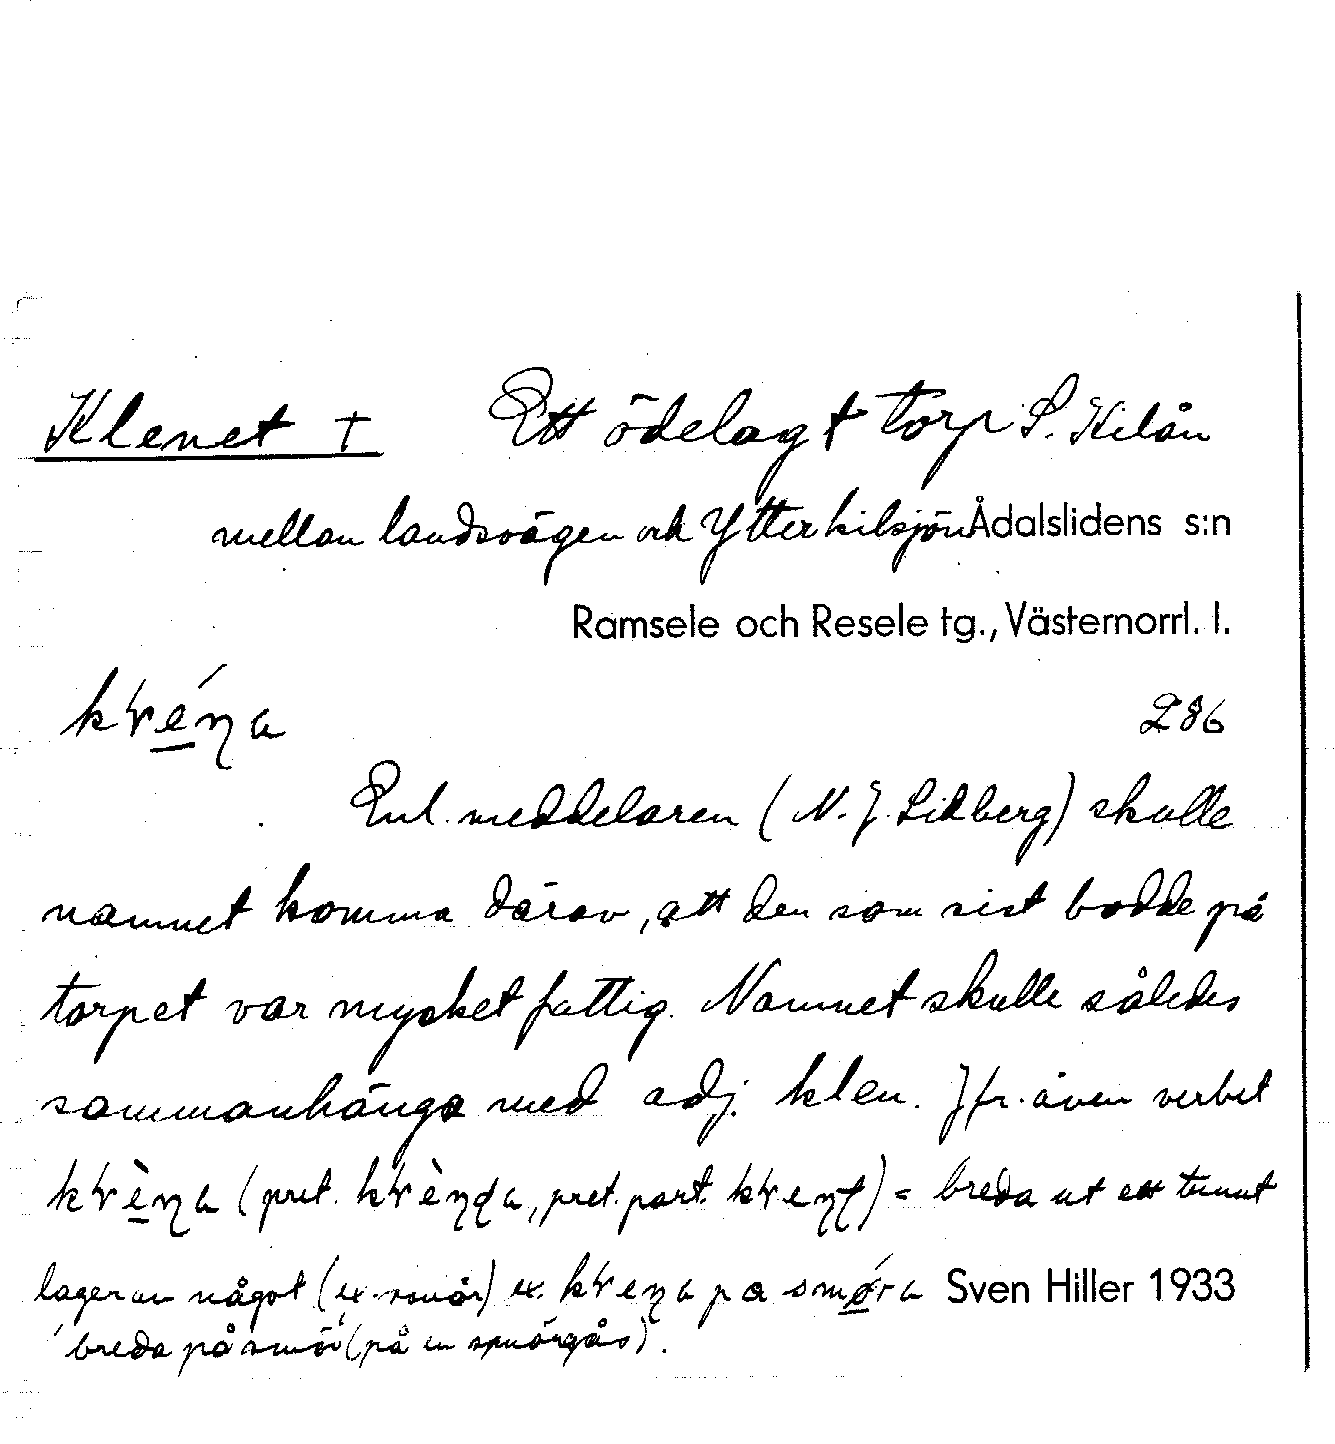 Klenet † Ett ödelagt torp S. Kilån
mellan landsvägen och Ytterkilsjön Ådalslidens s:n
Ramsele och Resele tg., Västernorrl. l.
286
Enl. meddelaren (N. J. Lidberg) skulle
namnet komma därav, att den som sist bodde på
torpet var mycket fattig. Namnet skulle således
sammanhänga med adj. klen. Jfr. även verbet
(pret. pret. part. ) = breda ut ett tunnt
lager av något (ex. smör) ex. Sven Hiller 1933
'breda på smör (på en smörgås).